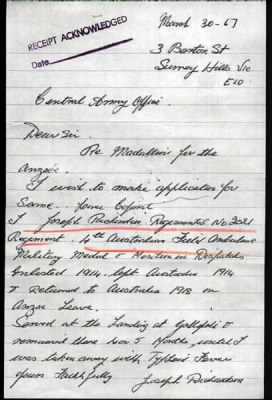 March 30-67
RECEIPT ACKNOWLEDGED
Date
3 Barton St
Surrey Hills Vic
E10
Central Army Office.
Dear Sir
Re Medallion for the
Anzac's.
I wish to make application for
Same.
I Joseph Richardson Regimental No 3021
Regiment. 4th Australian Field Ambulance
Military Medal & Mention in Despatches
Enlisted 1914. left Australia 1914
& Returned to Australia 1918 on
Anzac Leave.
Served at the Landing at Gallipoli &
remained there for 5 Months, until I
was taken away with Typhoid Fever
Yours Faithfully
Joseph Richardson